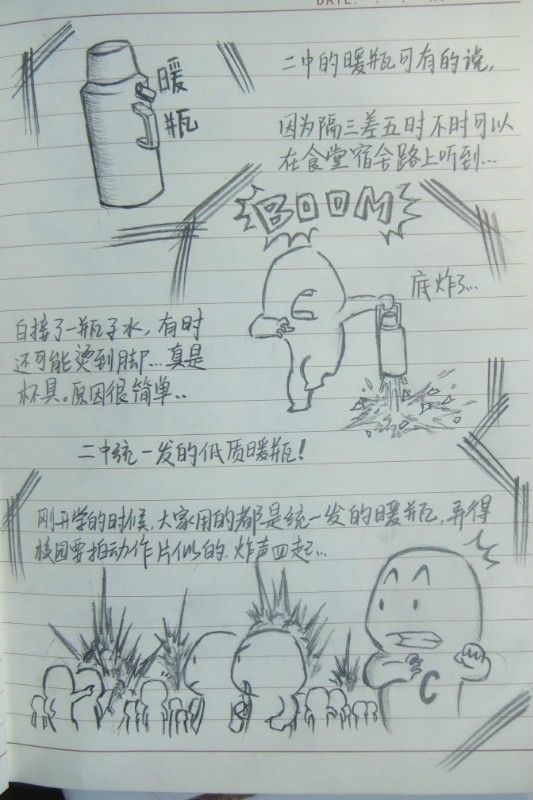 DATE:
暖
瓶
二中的暖瓶可有的说,
因为隔三差五时不时可以
在食堂宿舍路上听到...
BOOM
底炸了...
白接了一瓶子水,有时
还可能烫到脚...真是
杯具。原因很简单..
二中统一发的低质暖瓶!
刚开学的时候,大家用的都是统一发的暖瓶,弄得
校园要拍动作片似的.炸声四起...
C